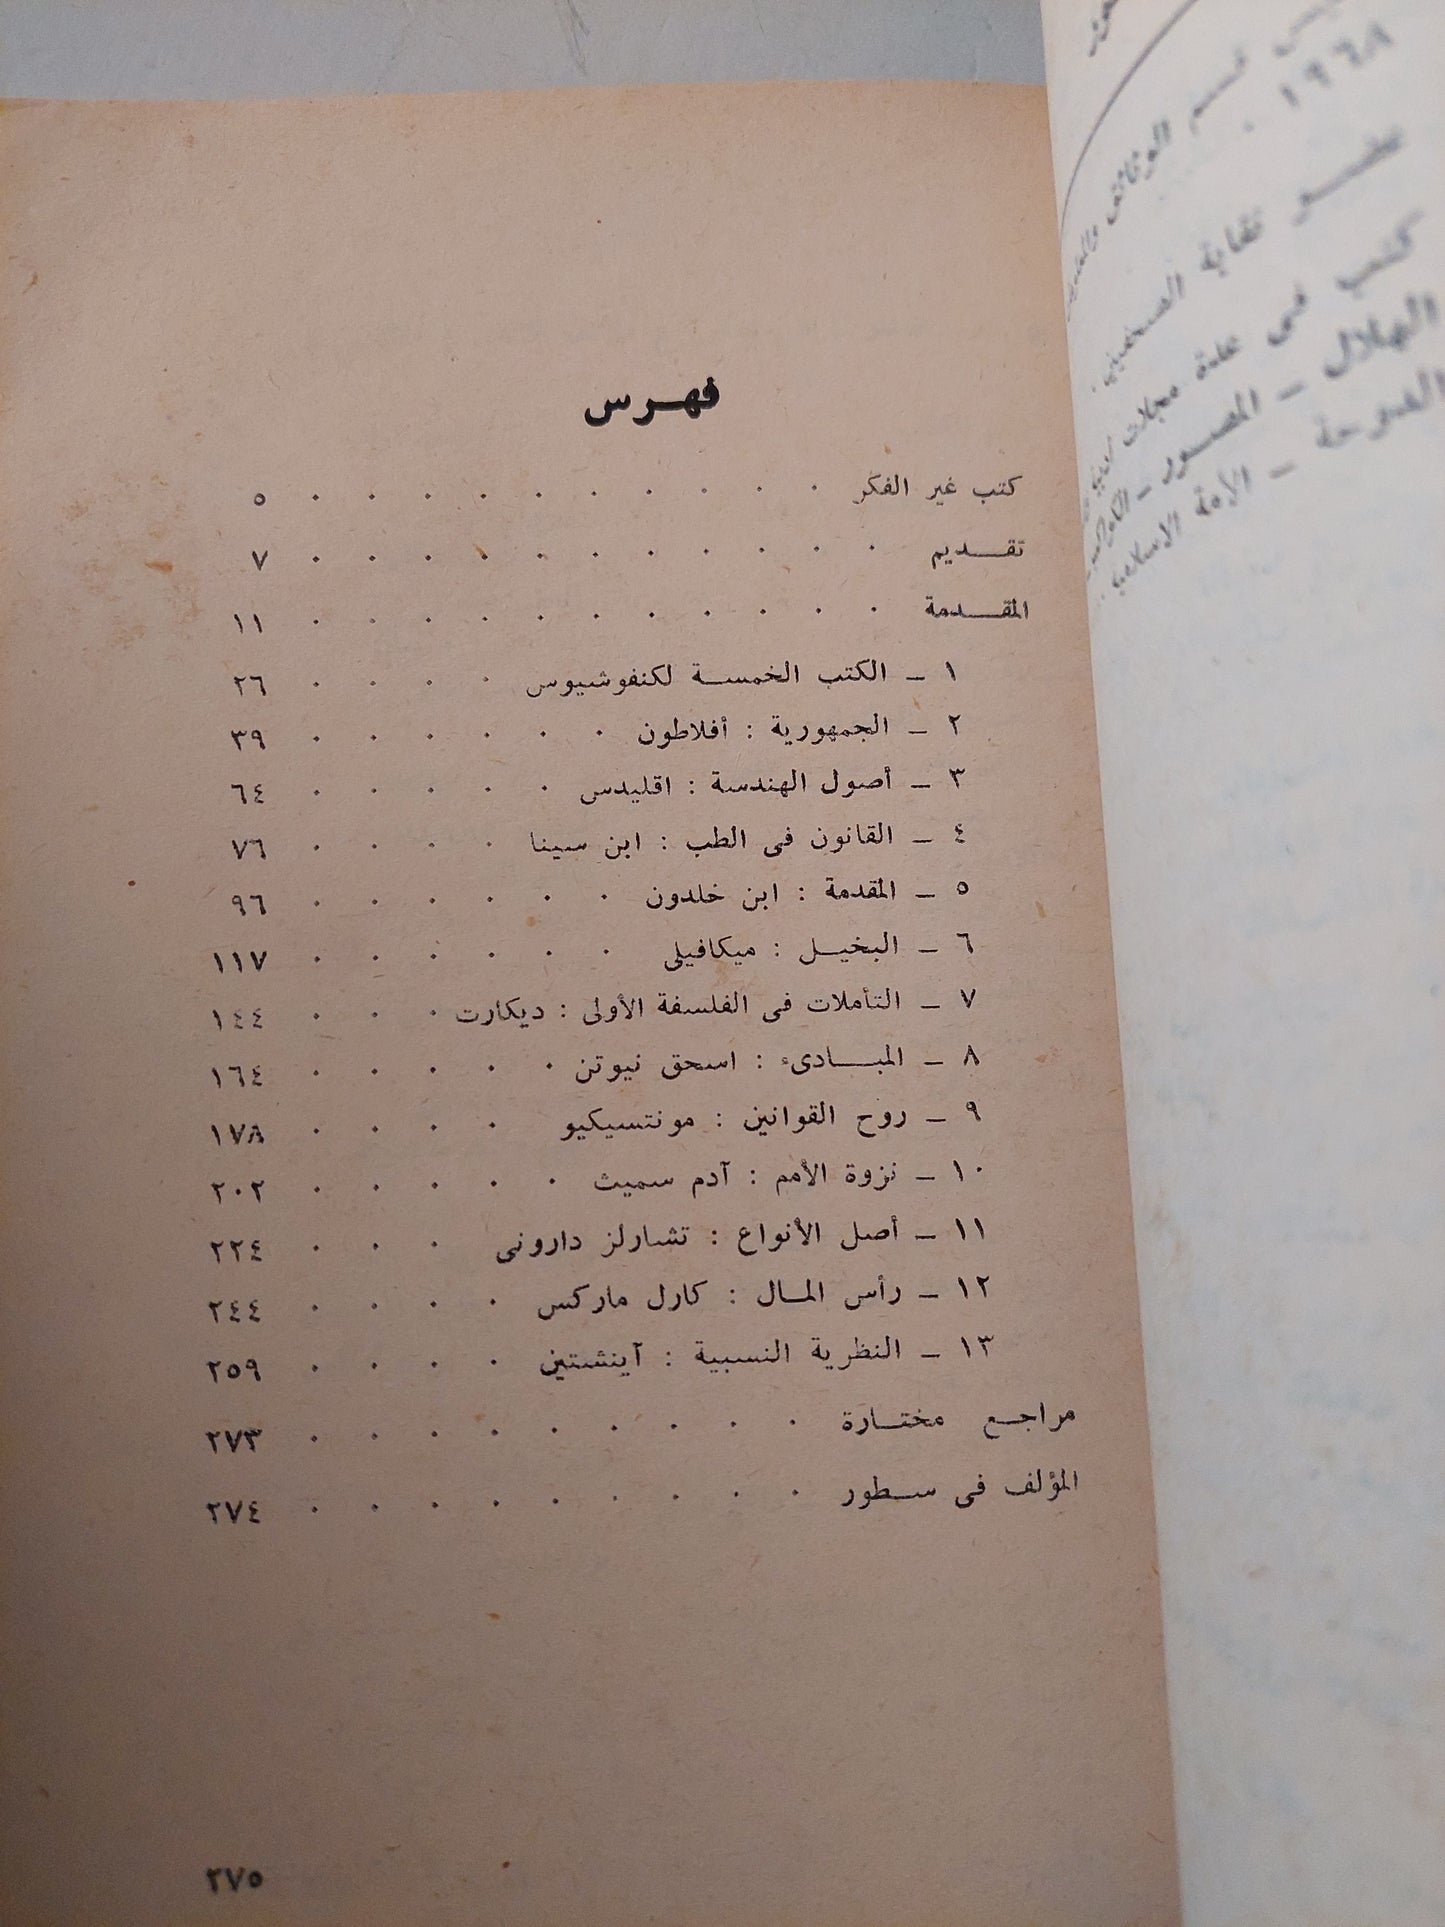 فهرس
كتب غير الفكر ٥
تقديم ٧
المقدمة ١١
١ ـ الكتب الخمسة لكنفوشيوس ٢٦
٢ ـ الجمهورية : أفلاطون ٣٩
٣ ـ أصول الهندسة : اقليدس ٦٤
٤ ـ القانون فى الطب : ابن سينا ٧٦
٥ ـ المقدمة : ابن خلدون ٩٦
٦ ـ البخيل : ميكافيلى ١١٧
٧ ـ التأملات فى الفلسفة الأولى : ديكارت ١٤٤
٨ ـ المبادىء : اسحق نيوتن ١٦٤
٩ ـ روح القوانين : مونتسيكيو ١٧٨
١٠ ـ نزوة الأمم : آدم سميث ٢٠٢
١١ ـ أصل الأنواع : تشارلز دارونى ٢٢٤
١٢ ـ رأس المال : كارل ماركس ٢٤٤
١٣ ـ النظرية النسبية : آينشتين ٢٥٩
مراجع مختارة ٢٧٣
المؤلف فى سطور ٢٧٤
٢٧٥
قسم الوثائق
١٩٦٨ .
عضو نقابة الصحفيين .
كتب فى عدة مجلات
الهلال ـ المصور ـ
الدوحة ـ الأمة